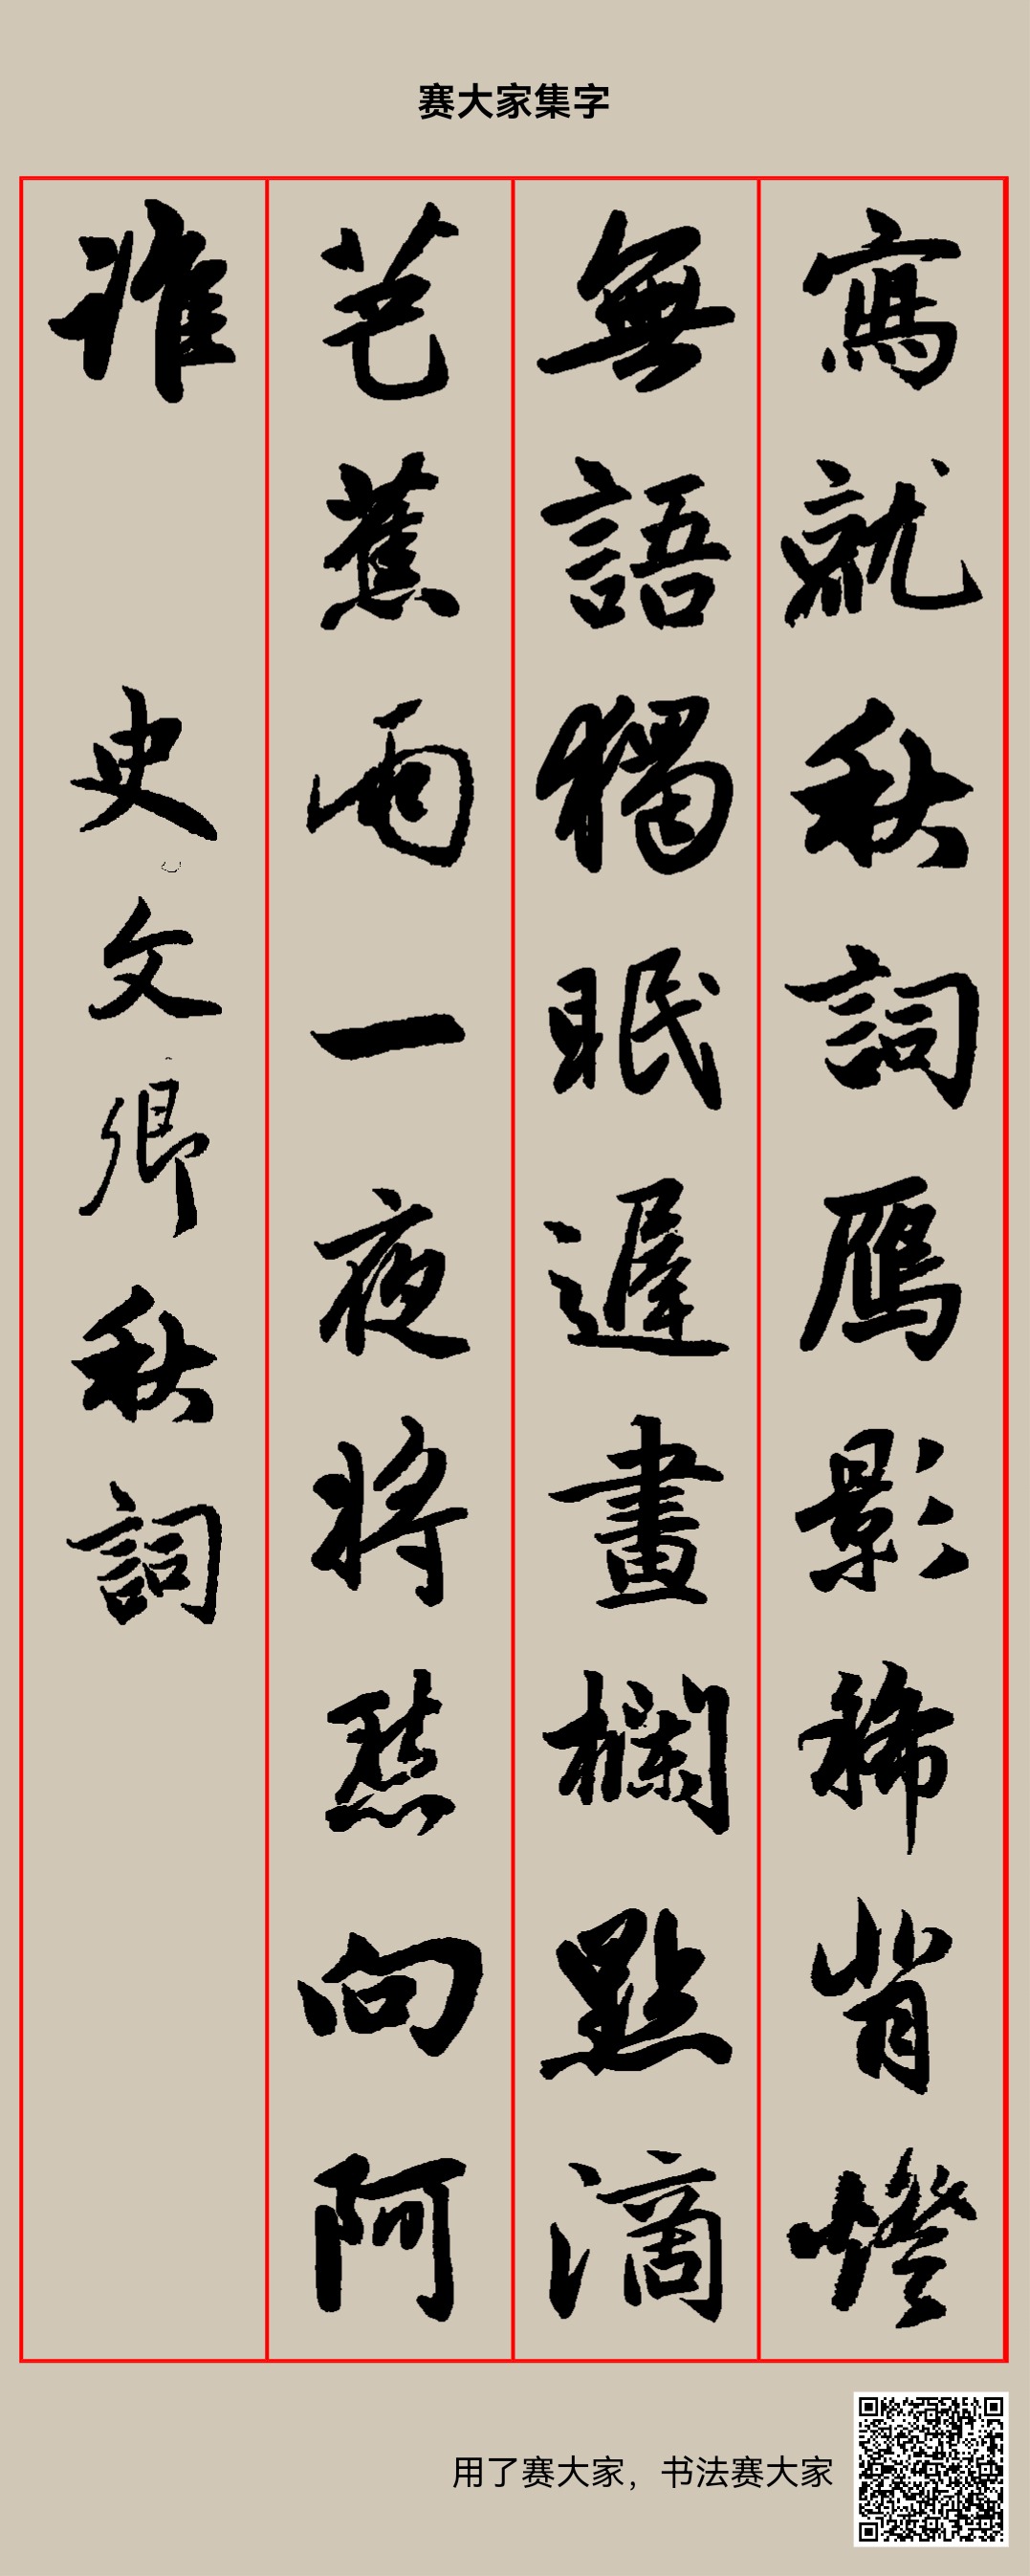 赛大家集字
寫就秋詞雁影稀背燈
無語獨眠遲畫欄點滴
芭蕉雨一夜將愁向阿
誰
史文卿秋詞
用了赛大家，书法赛大家